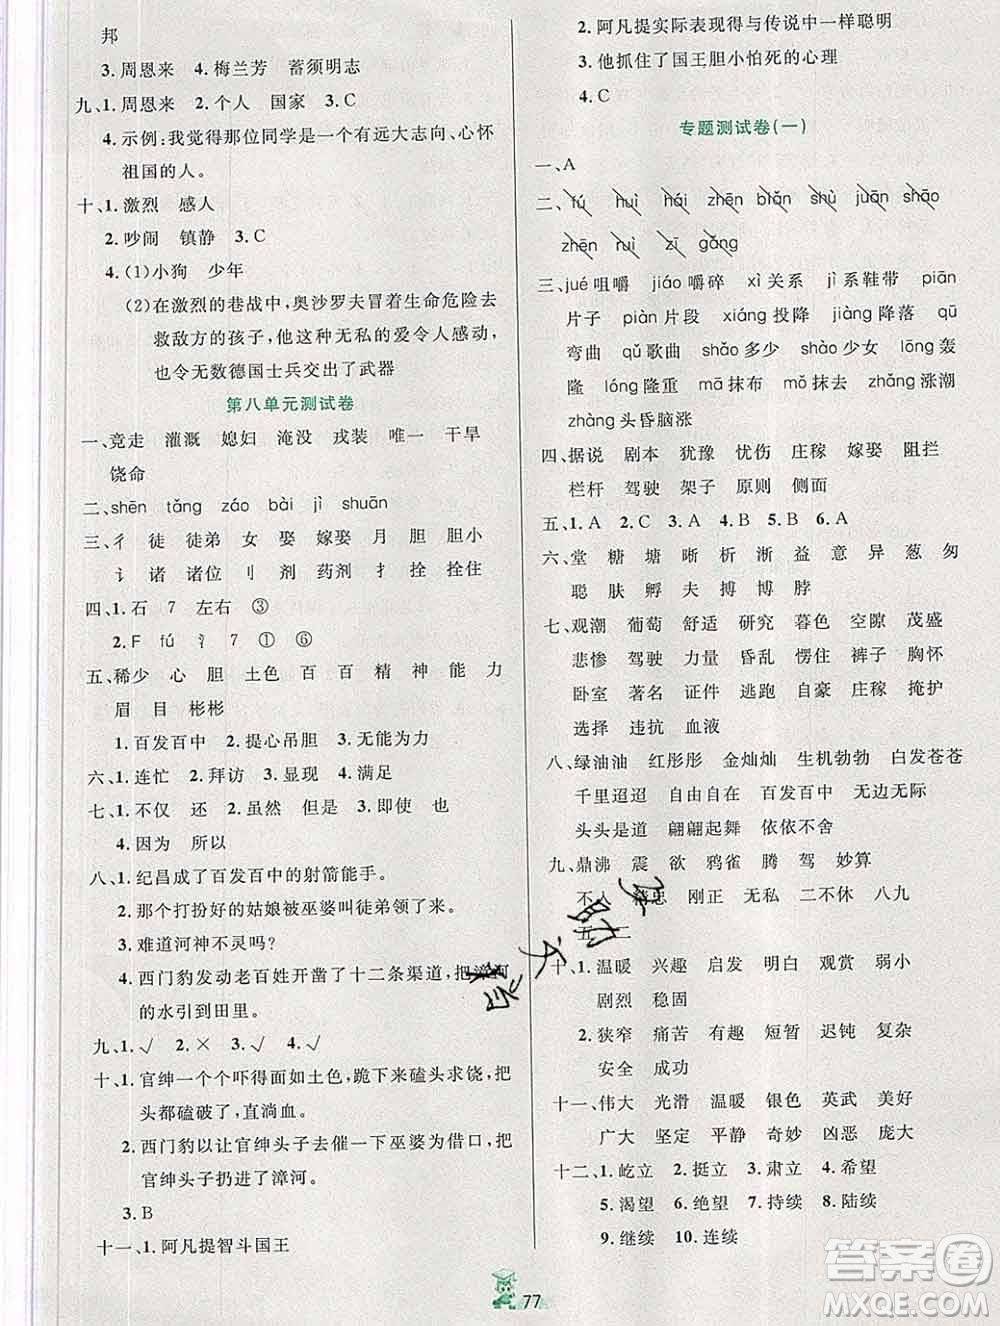 邦
3.周恩来 4.梅兰芳 蓄须明志
九、1.周恩来 2.个人 国家 3.C
4.示例:我觉得那位同学是一个有远大志向、心怀
祖国的人。
十、1.激烈 感人
2.吵闹 镇静 3.C
4.(1)小狗 少年
(2)在激烈的巷战中,奥沙罗夫冒着生命危险去
救敌方的孩子,他这种无私的爱令人感动,
也令无数德国士兵交出了武器
第八单元测试卷
一、竞走 灌溉 媳妇 淹没 戎装 唯一 干旱
饶命
二、shēn tǎng záo bài jì shuān
三、彳 徒 徒弟 女 娶 嫁娶 月 胆 胆小
讠 诸 诸位 刂 剂 药剂 扌 拴 拴住
四、1.石 7 左右 ③
2.F fú 氵 7 ① ⑥
五、稀少 心 胆 土色 百 百 精 神 能 力
眉 目 彬彬
1.百发百中 2.提心吊胆 3.无能为力
六、1.连忙 2.拜访 3.显现 4.满足
七、1.不仅 还 2.虽然 但是 3.即使 也
4.因为 所以
八、1.纪昌成了百发百中的射箭能手。
2.那个打扮好的姑娘被巫婆叫徒弟领了来。
3.难道河神不灵吗?
4.西门豹发动老百姓开凿了十二条渠道,把漳河
的水引到田里。
九、1.√ 2.× 3.√ 4.√
十、1.官绅一个个吓得面如土色,跪下来磕头求饶,把
头都磕破了,直淌血。
2.西门豹以让官绅头子去催一下巫婆为借口,把
官绅头子扔进了漳河。
3.B
十一、1.阿凡提智斗国王
2.阿凡提实际表现得与传说中一样聪明
3.他抓住了国王胆小怕死的心理
4.C
专题测试卷(一)
一、A
二、fú huì hái zhēn biǎn shù juān shāo
zhēn ruì zī gǎng
三、jué咀嚼 jiáo嚼碎 xì关系 jì系鞋带 piān
片子 piàn片段 xiáng投降 jiàng降落 qū
弯曲 qǔ歌曲 shǎo多少 shào少女 lōng轰
隆 lóng隆重 mā抹布 mǒ抹去 zhǎng涨潮
zhàng头昏脑涨
四、据说 剧本 犹豫 忧伤 庄稼 嫁娶 阻拦
栏杆 驾驶 架子 原则 侧面
五、1.A 2.C 3.A 4.B 5.B 6.A
六、堂 糖 塘 晰 析 淅 益 意 异 葱 匆
聪 肤 孵 夫 搏 博 脖
七、观潮 葡萄 舒适 研究 暮色 空隙 茂盛
悲惨 驾驶 力量 昏乱 愣住 裤子 胸怀
卧室 著名 证件 逃跑 自豪 庄稼 掩护
选择 违抗 血液
八、绿油油 红彤彤 金灿灿 生机勃勃 白发苍苍
千里迢迢 自由自在 百发百中 无边无际
头头是道 翩翩起舞 依依不舍
九、鼎沸 震 欲 鸦雀 腾 驾 妙算
不人 刚正 无私 二不休 八九
十、1.温暖 兴趣 启发 明白 观赏 弱小
剧烈 稳固
2.狭窄 痛苦 有趣 短暂 迟钝 复杂
安全 成功
十一、伟大 光滑 温暖 银色 英武 美好
广大 坚定 平静 奇妙 凶恶 庞大
十二、1.屹立 2.挺立 3.肃立 4.希望
5.渴望 6.绝望 7.持续 8.陆续
9.继续 10.连续
77
答案圈
MXQE.COM